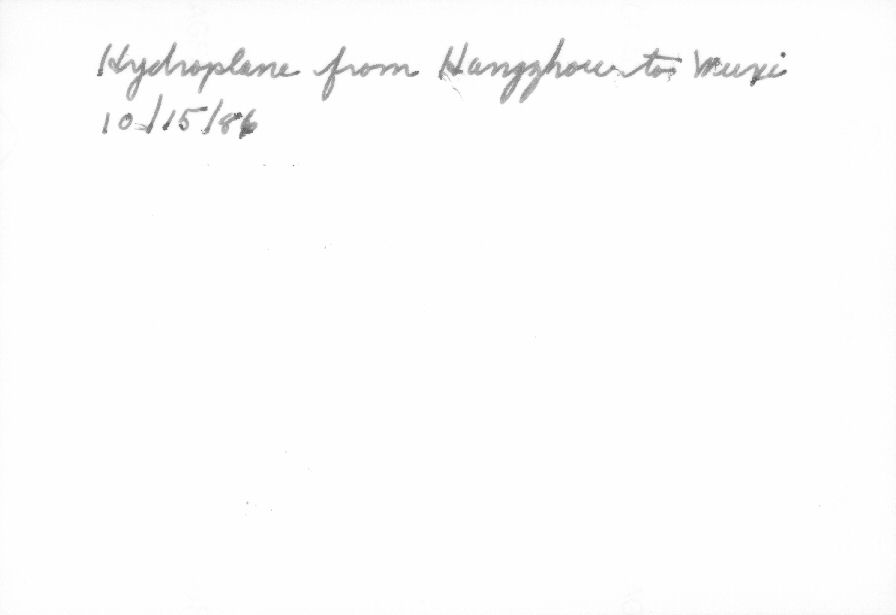 Hydroplane from Hangzhou to Wuxi
10/15/86